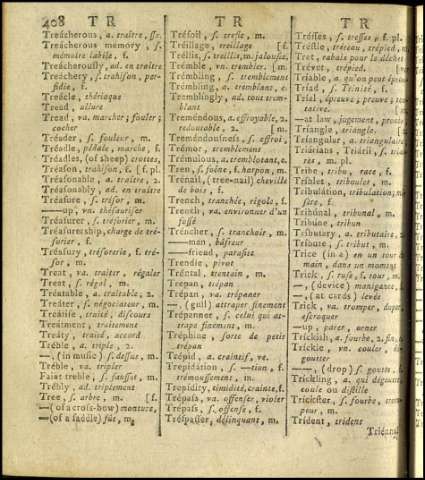 408 T R
T R
T R
Treácherous, a. traître, sse.
Treácherous memory, s.
mémoire labile, f.
Treácherously, ad. en traître
Treáchery, s. trahison, per-
fidie, f.
Treácle, thériaque
Tread, allure
Tread, va. marcher; fouler;
cocher
Tréader, s. fouleur, m.
Tréadle, pédale, marche, f.
Tréadles, (of sheep) crottes,
Tréason, trahison, f. [f. pl.
Tréasonable, a. traître, 2.
Tréasonably, ad. en traître
Tréasure, s. trésor, m.
—up, va. thésauriser
Tréasurer, s. trésorier, m.
Tréasurership, charge de tré-
sorier, f.
Tréasury, trésorerie, f. tré-
sor, m.
Treat, va. traiter, régaler
Treat, s. régal, m.
Tréatable, a. traitable, 2.
Tréater, s. négociateur, m.
Tréatise, traité, discours
Tréatment, traitement
Tréaty, traité, accord
Tréble, a. triple, 2.
—, (in music) s. dessus, m.
Tréble, va. tripler
Faint treble, s. fausset, m.
Trébly, ad. triplement
Tree, s. arbre, m. [f.
—(of a cross-bow) monture,
—(of a saddle) fût, m.
Tréfoil, s. trefle, m.
Tréillage, treillage [f.
Tréllis, s. treillis, m. jalousie,
Trémble, va. trembler, [m.
Trémbling, s. tremblement
Trémbling, a. tremblant, e.
Tremblingly, ad. tout trem-
blant
Treméndous, a. effroyable, 2.
redoutable, 2. [m.
Treméndousness, s. effroi,
Trémor, tremblement
Trémulous, a. tremblotant, e.
Tren, s. foine, f. harpon, m.
Trénail, (tree-nail) cheville
de bois, f.
Trench, tranchée, rigole, f.
Trench, va. environner d'un
fossé
Tréncher, s. tranchoir, m.
—man, bâfreur
—friend, parasite
Trendle, pivot
Tréntal, trentain, m.
Trepan, trépan
Trépan, va. trépaner
—, (gull) attraper finement
Trépanner, s. celui qui at-
trape finement, m.
Tréphine, sorte de petit
trépan
Trépid, a. craintif, ve.
Trepidátion, s. —tion, f.
trémoussement, m.
Trepídity, timidité, crainte, f.
Tréspass, va. offenser, violer
Tréspass, s. offense, f.
Tréspasser, délinquant, m.
Trésses, s. tresses, f. pl.
Tréstle, tréteau, trépied, m.
Tret, rabais pour le déchet
Trévet, trépied
Triable, a. qu'on peut
Tríad, s. Trinité, f.
Trial, épreuve; preuve;
—at law, jugement,
Triangle, triangle, [m.
Triángular, a. triangulaire
Tribe, tribu, race, f.
Tríbulation, tribulation;
Tribúnal, tribunal, m.
Tríbune, tribun
Tríbutary, a. tributaire, 2.
Tríbute, s. tribut, m.
Trice (in a) en un tour de
main, dans un moment
Trick, s. ruse, f. tour, m.
—, (device) manigance, f.
—, (at cards) levée
Trick, va. tromper, duper,
escroquer
—up, parer, orner
Trickish, a. fourbe, 2. fin, e.
Trickle, vn. couler, dé-
goutter
—, (drop) s. goutte, f.
Trickling, a. qui dégoutte,
coule ou distille
Trickster, s. fourbe, trom-
peur, m.
Trident, trident